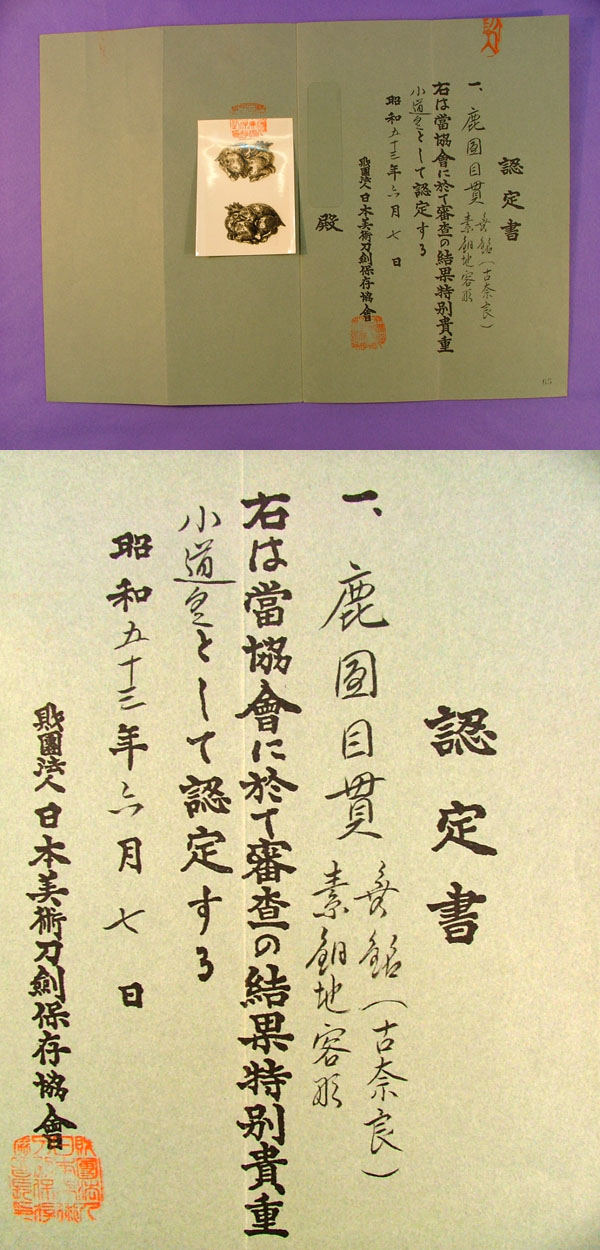 認定書
一、鹿図目貫 無銘（古奈良）
素銅地容彫
右は當協會に於て審査の結果特別貴重
小道具として認定する
昭和五十三年六月七日
財團法人日本美術刀劍保存協會
殿
認定書
一、鹿図目貫 無銘（古奈良）
素銅地容彫
右は當協會に於て審査の結果特別貴重
小道具として認定する
昭和五十三年六月七日
財團法人日本美術刀劍保存協會